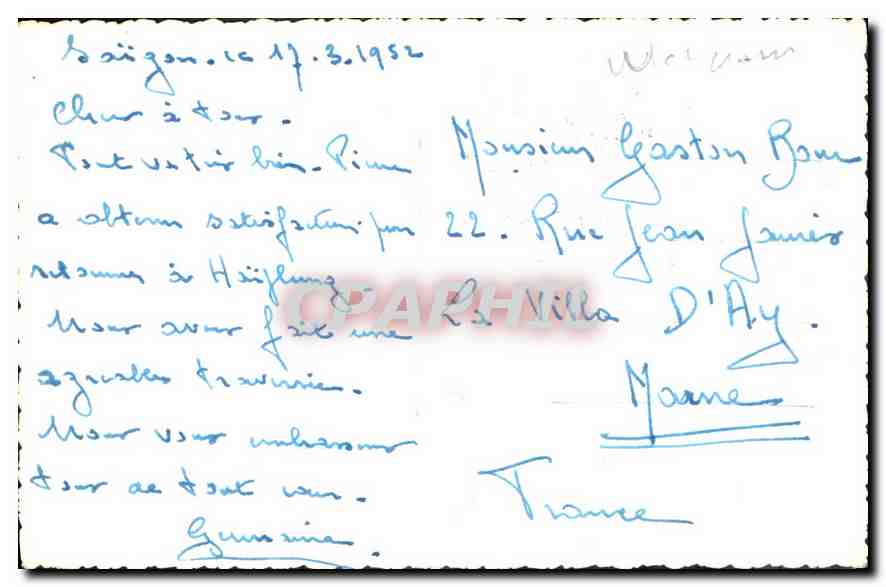 Saïgon. le 17.3.1952
Cher à tous.
Tout va très bien. Pierre
a obtenu satisfaction pour
retourner à Haïphong.
Nous avons fait une
agréable traversée.
Nous vous embrassons
tous de tout cœur.
Germaine.
Monsieur Gaston
22. Rue Jean Jaurès
La Villa D'Ay.
Marne
France
CPAPHIL